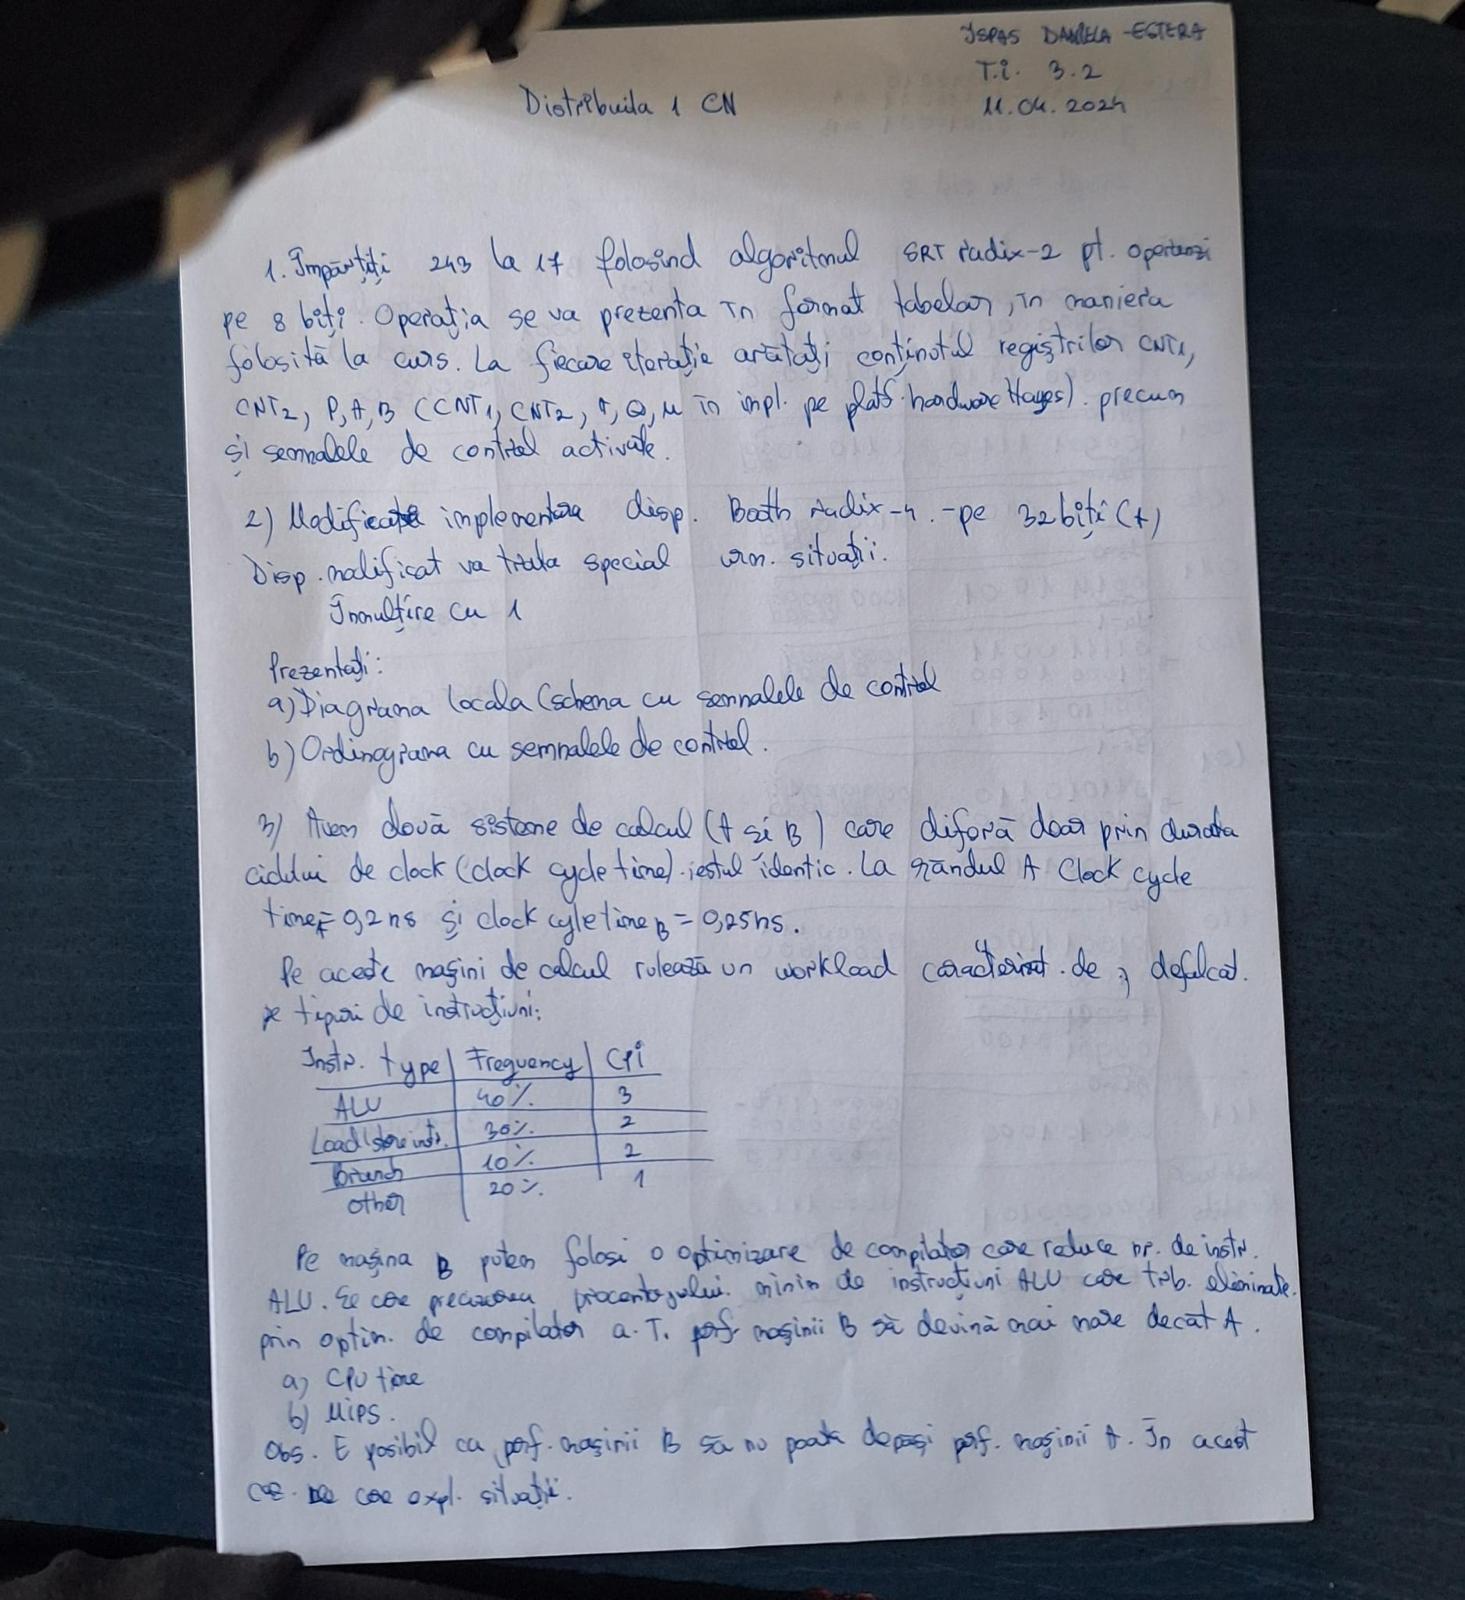 ISPAS DANIELA-ESTERA
T.i. 3.2
11.04.2024
Distribuita 1 CN
1. Împărțiți 243 la 17 folosind algoritmul SRT radix-2 pt. operanzi
pe 8 biți. Operația se va prezenta în format tabelar, în maniera
folosită la curs. La fiecare iterație arătați conținutul regiștrilor CNT1,
CNT2, P, A, B (CNT1, CNT2, P, Q, M în impl. pe platf. hardware Hayes). precum
și semnalele de control activate.
2) Modificați implementarea disp. Booth radix-4. -pe 32 biți (*)
Disp. modificat va trata special urm. situații:
Înmulțire cu 1
Prezentați:
a) Diagrama locala (schema cu semnalele de control
b) Ordinograma cu semnalele de control.
3) Avem două sisteme de calcul (A și B) care diferă doar prin durata
ciclului de clock (clock cycle time). restul identic. La rândul A Clock cycle
time = 0,2 ns și clock cyle time B = 0,25 ns.
Pe aceste mașini de calcul rulează un workload caracterizat. de, defalcat.
pe tipuri de instrucțiuni:
Instr. type Frequency CPi
ALU 40% 3
Load/store instr. 30% 2
Branch 10% 2
other 20% 1
Pe mașina B putem folosi o optimizare de compilator care reduce nr. de instr.
ALU. Se cere precizarea procentajului minim de instrucțiuni ALU care trb. eliminate.
prin optim. de compilator a.î. perf. mașinii B să devină mai mare decât A.
a) CPU time
b) MIPS.
Obs. E posibil ca perf. mașinii B să nu poată depăși perf. mașinii A. În acest
caz. se cere expl. situații.